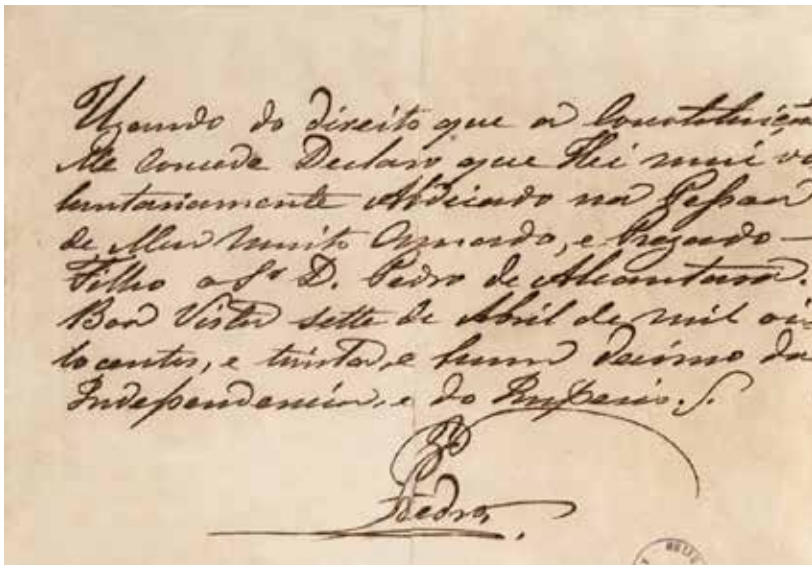 Uzando do direito que a Constituição
Me concede Declaro que Hei mui vo
luntariamente Abdicado na Pessoa
de Meu muito Amado, e Prezado
Filho o Sr. D. Pedro de Alcantara.
Boa Vista sette de Abril de mil oi
tocentos, e trinta, e hum decimo da
Independencia, e do Imperio.
Pedro